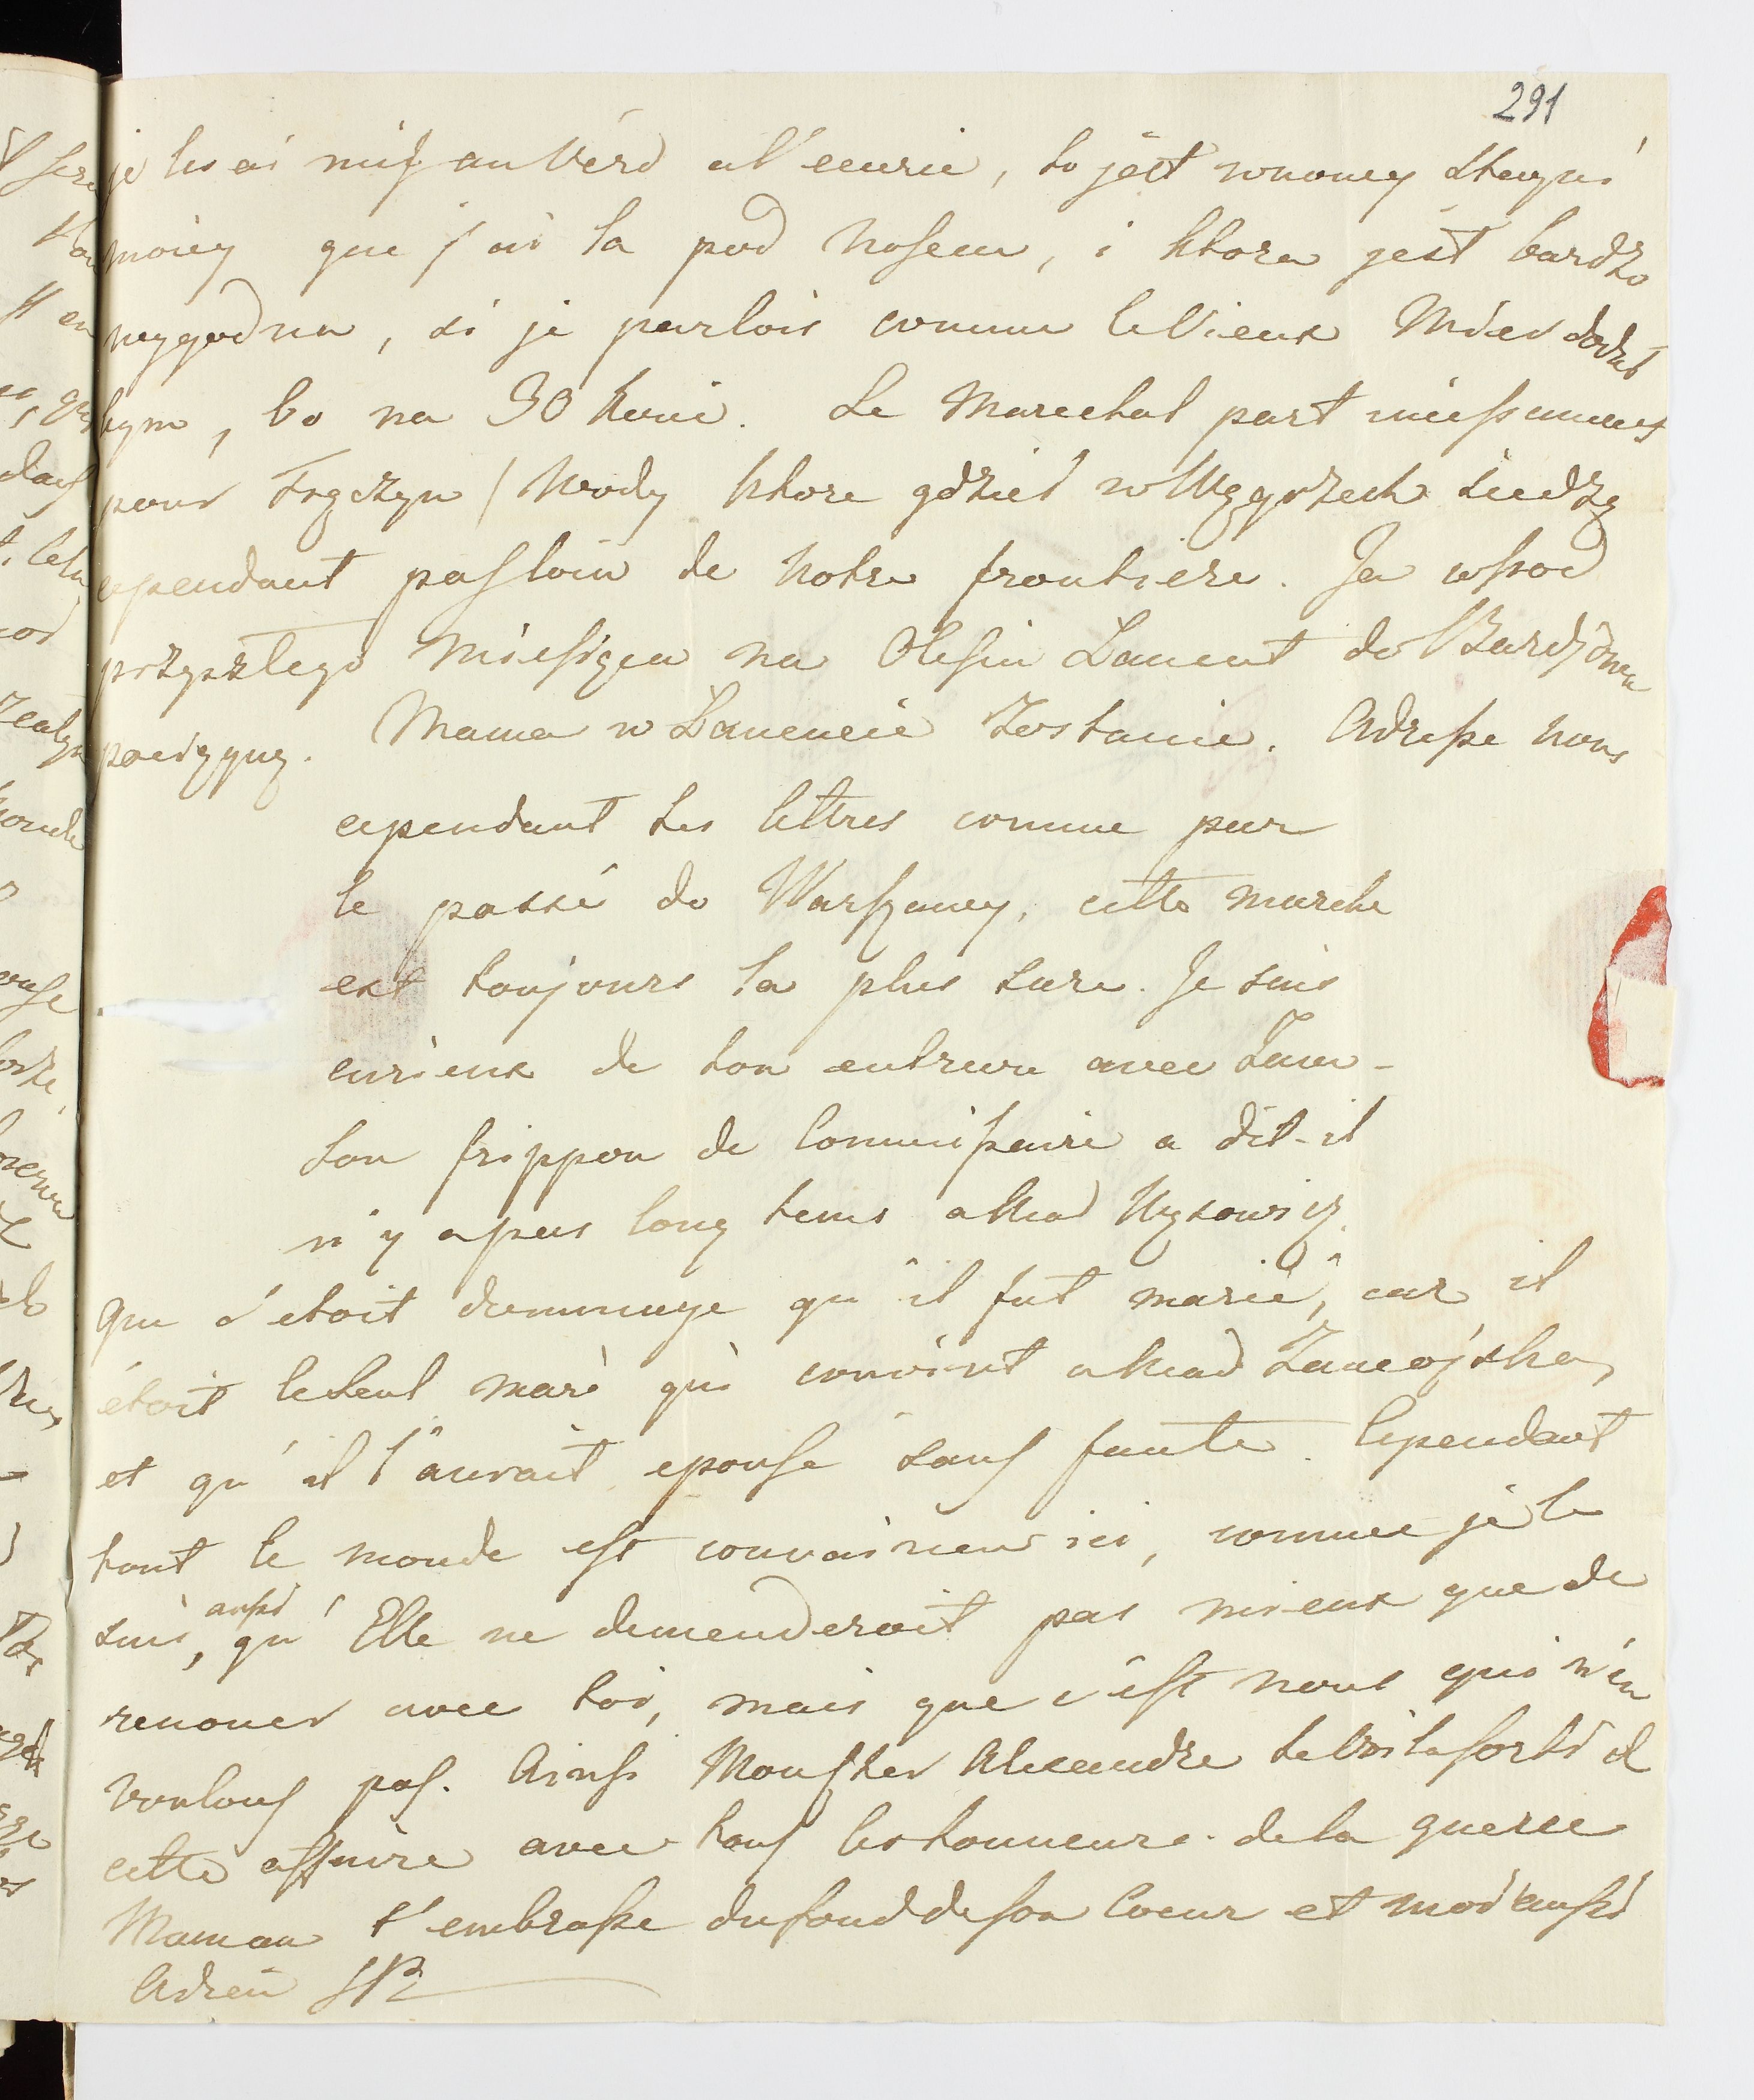 291
je les ai mis au Verd a l'ecurie, to jest w nowey stayni
moiey que j'ai la pod nosem, i ktora jest bardzo
wygodna, si je parlois comme le Vieux Mier dodał
bym, bo na 30 koni. Le Marechal part incessament
pour Tręczyn / Wody ktore gdzieś w Węgrzech siedzą
cependant pas loin de notre frontiere. Ja wśrod
przyszłego Miesiąca na Olesin Lancut do Bardjowa
pociągnę. Mama w Lancucie zostanie. Adresse nous
cependant tes lettres comme par
le passé do Warszawy, cette marche
est toujours la plus sure. Je suis
curieux de ton entrevu avec Zam-
Son frippon de Commissaire a dit-il
n'y a pas long tems a Mad Wąsowicz
que c'etoit dommage qu'il fut marié, car il
étoit le seul mari qui convint a Mad Zamojska,
et qu'il l'aurait epousé sans faute. Cependant
tout le monde est convaincu ici, comme je le
suis, aussi qu'Elle ne demenderoit pas mieux que de
renouer avec toi, mais que c'est nous qui n'en
voulons pas. Ainsi Monsster Alexandre te voila sorti d
cette affaire avec tous les honneurs de la guerre
Maman t'embrasse du fond de son Coeur et moi aussi
Adieu SP